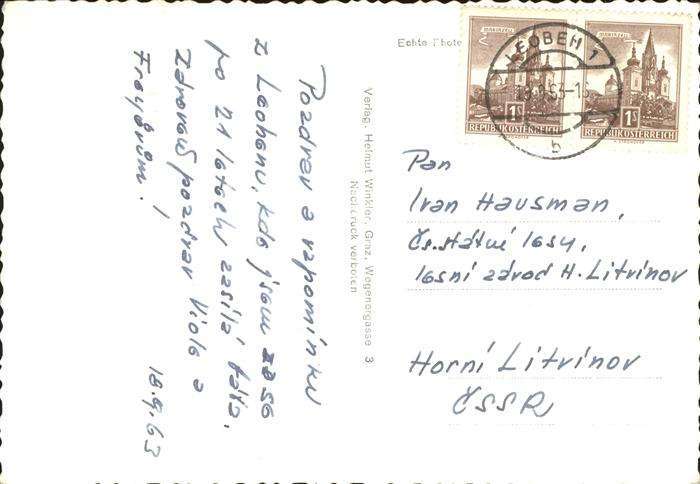 Pozdrav a vzpomínku
z Leobenu, kde jsem zase
po 21 letech zasílá táta.
Zdravas pozdrav Viole a
!
18.9.63
Echte Photo
Verlag, Helmut Winkler, Graz, Wegenergasse 3
Nachdruck verboten
LEOBEN 1
b
MARIAZELL
1S
REPUBLIK ÖSTERREICH
MARIAZELL
1S
REPUBLIK ÖSTERREICH
Pan
Ivan Hausman,
Čs. státní lesy,
lesní závod H. Litvínov
Horní Litvínov
ČSSR